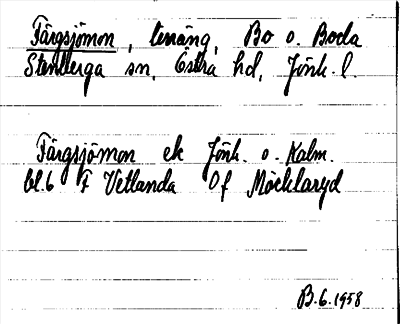 Färgsjömon, terräng, Bo o. Boda
Stenberga sn, Östra hd, Jönk. l.
Färgsjömon ek Jönk. o. Kalm.
bl.6 F Vetlanda Of Möcklaryd
B.6.1958